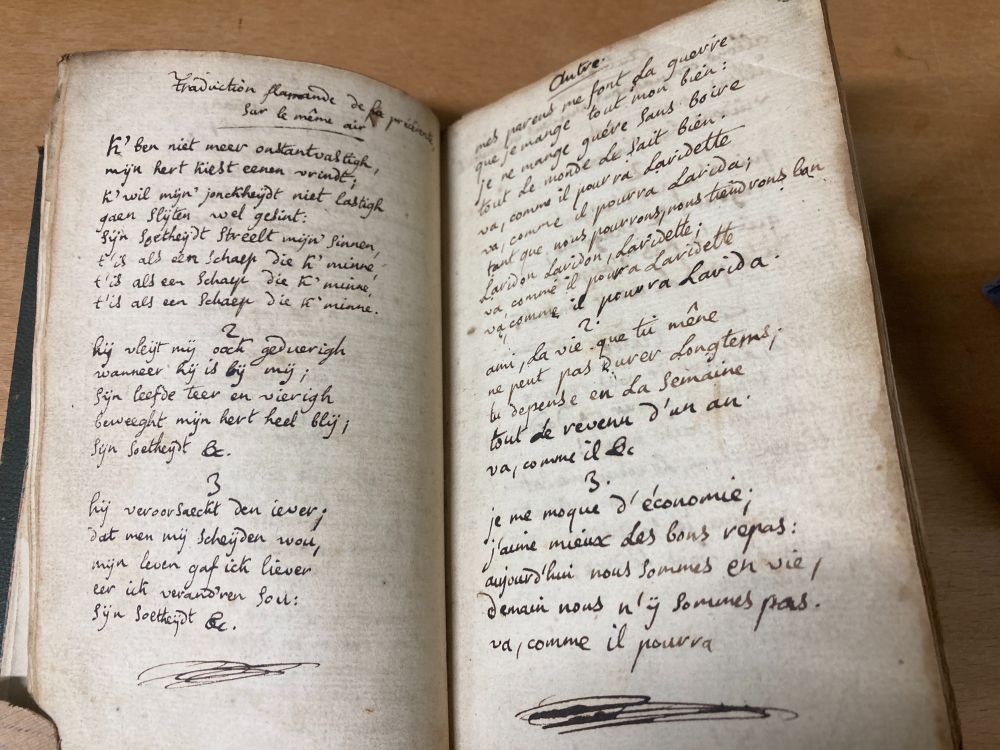 Traduction flamande de la présente
sur le même air
K'ben niet meer onstantvastigh,
mijn hert kiest eenen vrindt;
k'wil mijn' jonckheijdt niet lastigh
gaen slijten wel gesint:
sijn soetheijdt streelt mijn' sinnen,
t'is als een schaep die k'minne,
t'is als een schaep die k'minne,
t'is als een schaep die k'minne.
2
hij vleijt mij oock geduerigh
wanneer hij is bij mij;
sijn leefde teer en vierigh
beweeght mijn hert heel blij;
sijn soetheijdt &c.
3
hij veroorsaeckt den iever;
dat men mij scheijden wou,
mijn leven gaf ick liever
eer ick verand'ren sou:
sijn soetheijdt &c.
Autre.
mes parens me font la guerre
que je mange tout mon bien:
je ne mange guére sans boire
tout le monde le sait bien.
va, comme il pourra laridette
va, comme il pourra larida;
tant que nous pourrons, nous tiendrons ban
laridon laridon, laridette;
va, comme il pourra laridette
va, comme il pourra larida.
2.
ami, la vie que tu mêne
ne peut pas durer longtems;
tu depense en la semaine
tout le revenu d'un an.
va, comme il &c
3.
je me moque d'économie;
j'aime mieux les bons repas:
aujourd'hui nous sommes en vie,
demain nous n'ÿ sommes pas.
va, comme il pourra